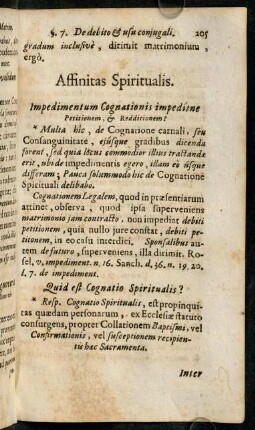 §. 7. De debito & usu conjugali. 205
gradum inclusivè, dirimit matrimonium,
ergò.
Affinitas Spiritualis.
Impedimentum Cognationis impediine
Petitionem, & Redditionem?
* Multa hîc, de Cognatione carnali, seu
Consanguinitate, ejúsque gradibus dicenda
forent, sed quia locus commodior illius tractandæ
erit, ubi de impedimentis egero, illam eò usque
differam; Pauca solummodo hîc de Cognatione
Spirituali delibabo.
Cognationem Legalem, quod in præsentiarum
attinet, observa, quod ipsa superveniens
matrimonio jam contracto, non impediat debiti
petitionem, quia nullo jure constat, debiti pe-
titionem, in eo casu interdici. Sponsalibus au-
tem de futuro, superveniens, illa dirimit. Ro-
sel, v. impediment. n. 16. Sanch. d. 36. n. 19. 20.
l. 7. de impediment.
Quid est Cognatio Spiritualis?
* Resp. Cognatio Spiritualis, est propinqui-
tas quædam personarum, ex Ecclesiæ statuto
consurgens, propter Collationem Baptismi, vel
Confirmationis, vel susceptionem recipien-
tis hæc Sacramenta.
Inter